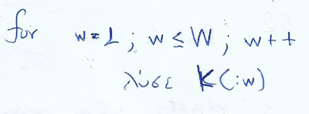 for w=1; w≤W; w++
λύσε K(:w)